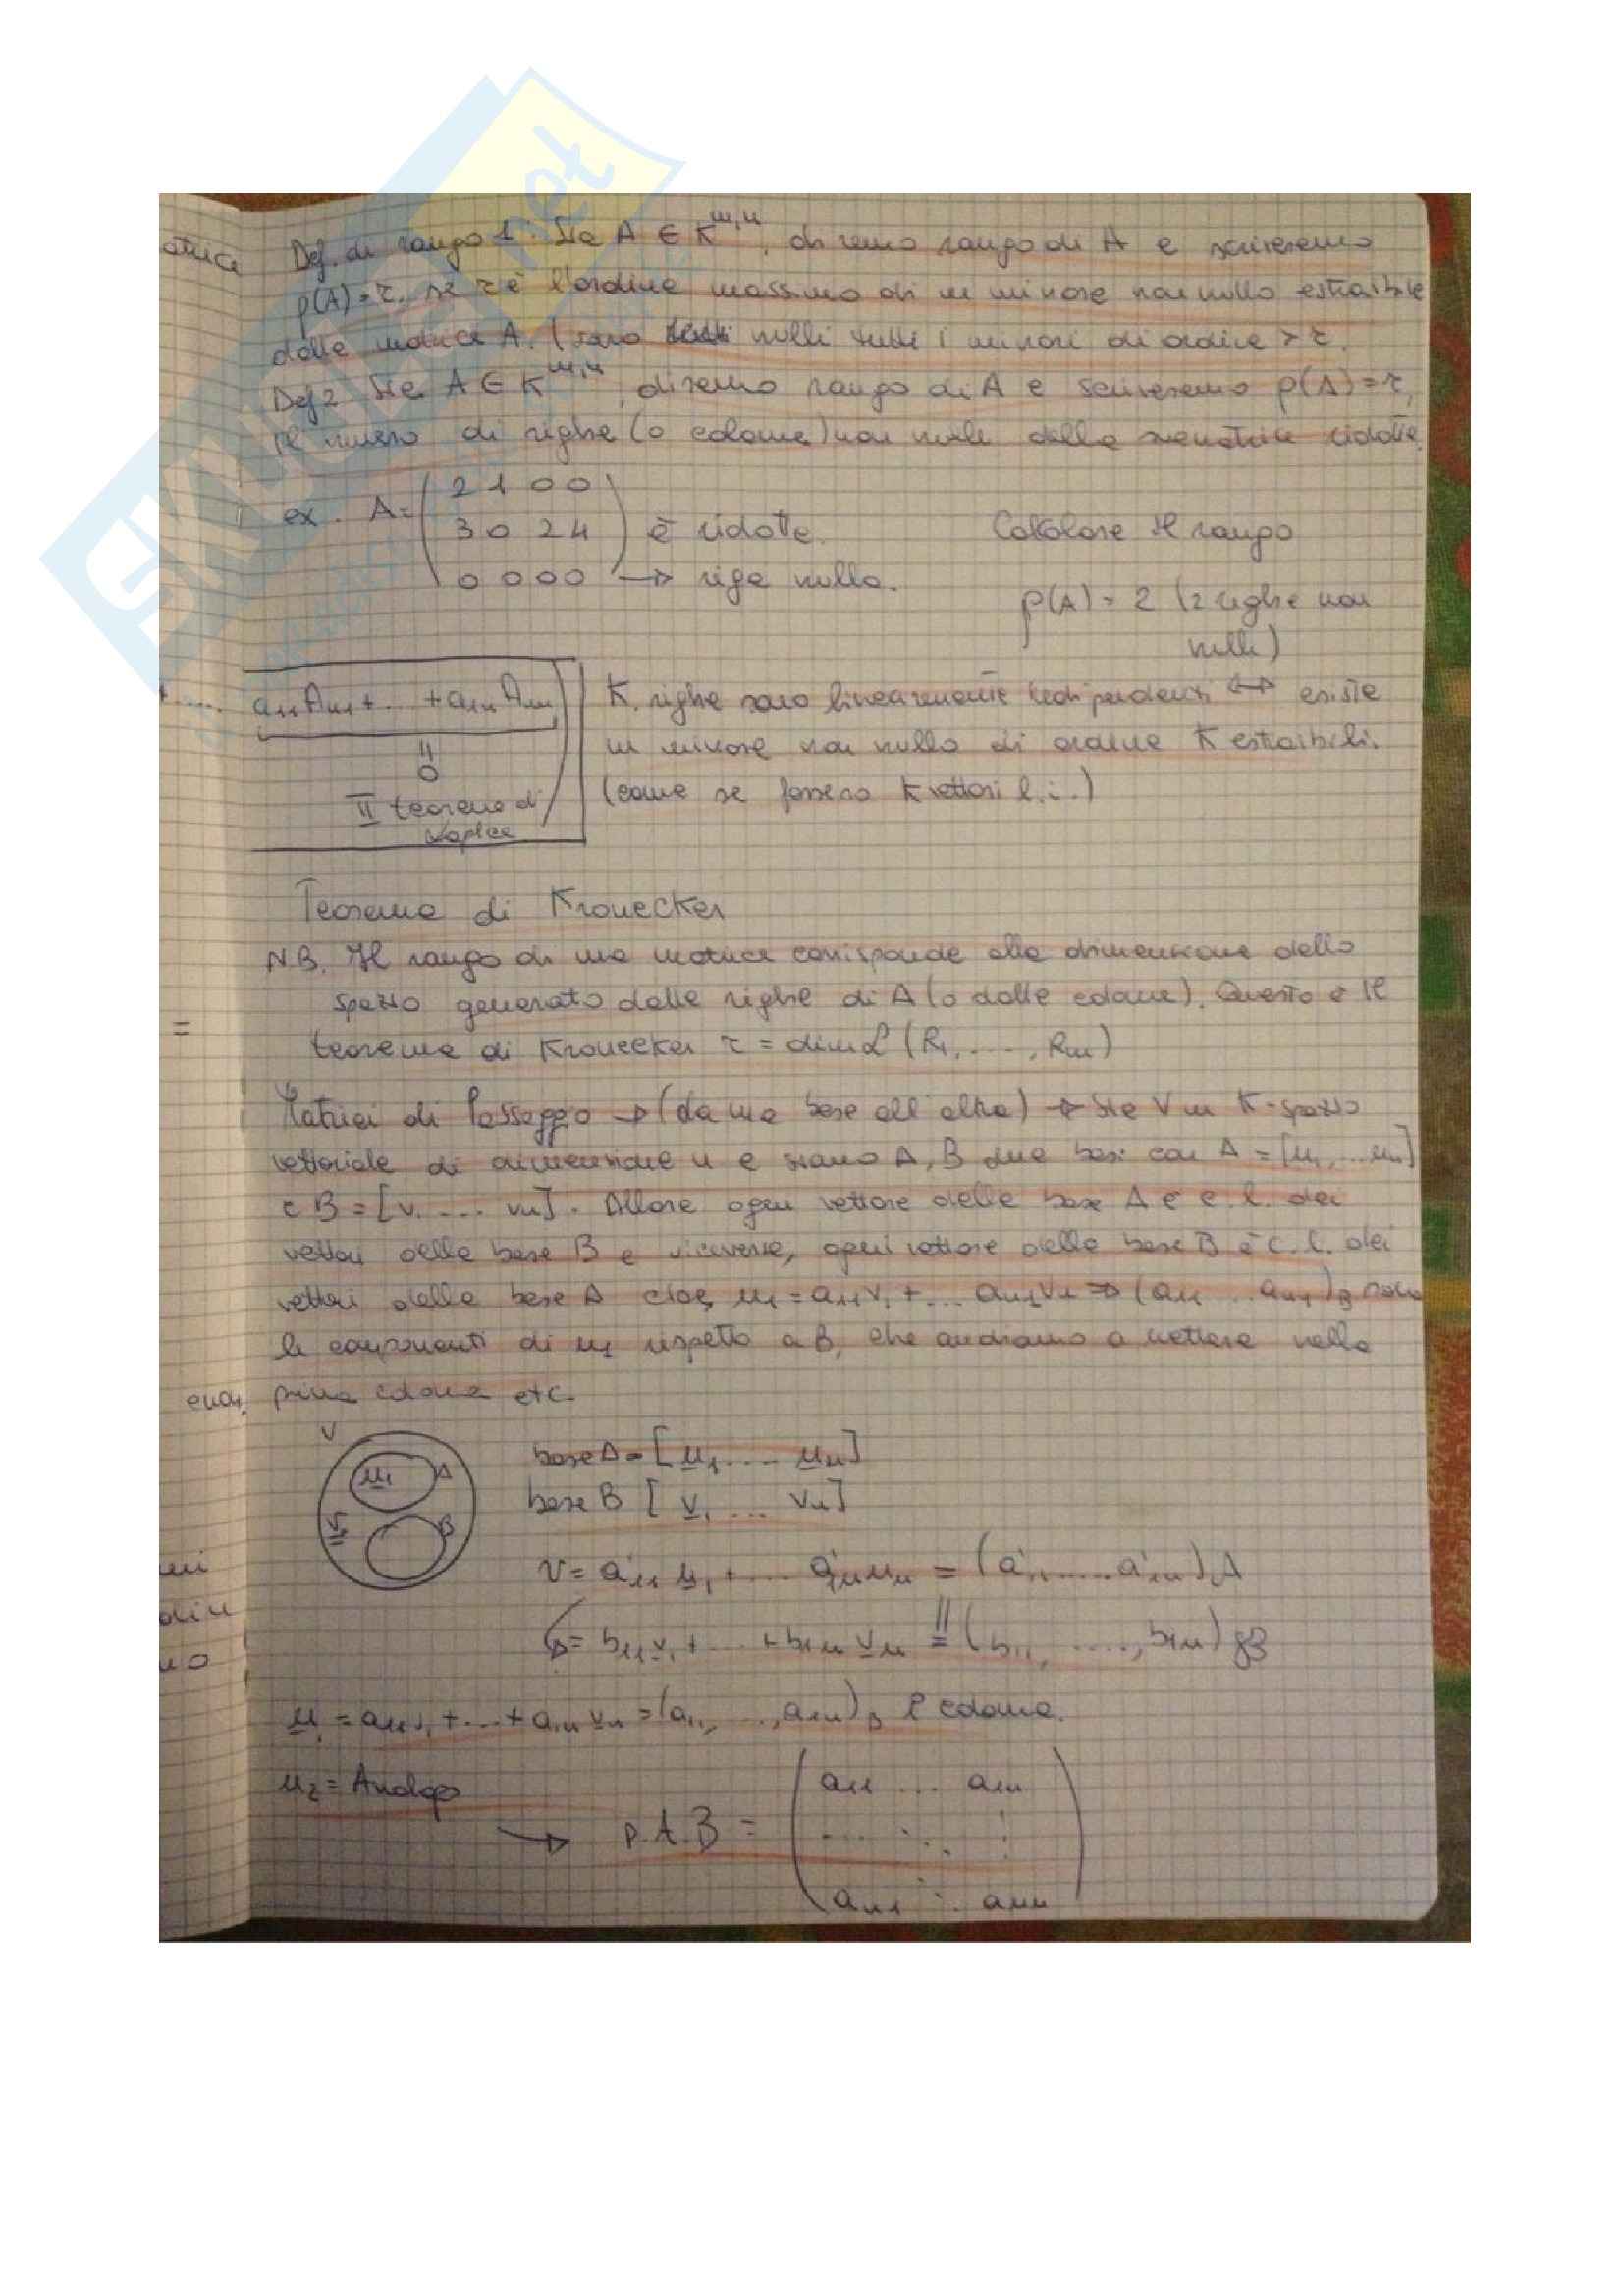 Def. di rango 1: Sia A ∈ K^m,n, diremo rango di A e scriveremo
ρ(A) = r, se r è l'ordine massimo di un minore non nullo estraibile
dalla matrice A. (sono nulli tutti i minori di ordine > r.
Def 2 Sia A ∈ K^m,n, diremo rango di A e scriveremo ρ(A) = r,
il numero di righe (o colonne) non nulle della matrice ridotta.
ex. A = ( 2 1 0 0
3 0 2 4 ) è ridotta. Calcolare il rango
0 0 0 0 → riga nulla.
ρ(A) = 2 (2 righe non
nulle)
a11 An1 + .. + a1n Ann
=
0
II teorema di
Laplce
K righe sono linearmente indipendenti ↔ esiste
un minore non nullo di ordine K estraibili.
(come se fossero K vettori l.i.)
Teorema di Kronecker
N.B. Il rango di una matrice corrisponde alla dimensione dello
spazio generato dalle righe di A (o dalle colonne). Questo è il
teorema di Kronecker r = dim L (R1, ...., Rm)
Matrici di Passaggio → (da una base all'altra) → Sia V un K-spazio
vettoriale di dimensione n e siano A, B due basi con A = [u1, ... un]
e B = [v1 .... vn]. Allora ogni vettore della base A è c.l. dei
vettori della base B e viceversa, ogni vettore della base B è c.l. dei
vettori della base A cioè, u1 = a11 v1 + ... an1 vn ⇒ (a11 ... an1)B sono
le componenti di u1 rispetto a B, che andiamo a mettere nella
prima colonna etc.
V
u1 A
v1 B
base A = [u1 .... un]
base B [v1 ... vn]
v = a'11 u1 + .... a'1n un = (a'11 ..... a'1n)A
= b11 v1 + ... + b1n vn = (b11, ....., b1n) B
u1 = a11 v1 + ... + a1n vn = (a11, ..., a1n)B I colonna.
u2 = Analogo
→ P.A.B = ( a11 ... a1n
... ⋱ ⋮
an1 ⋱ ann )